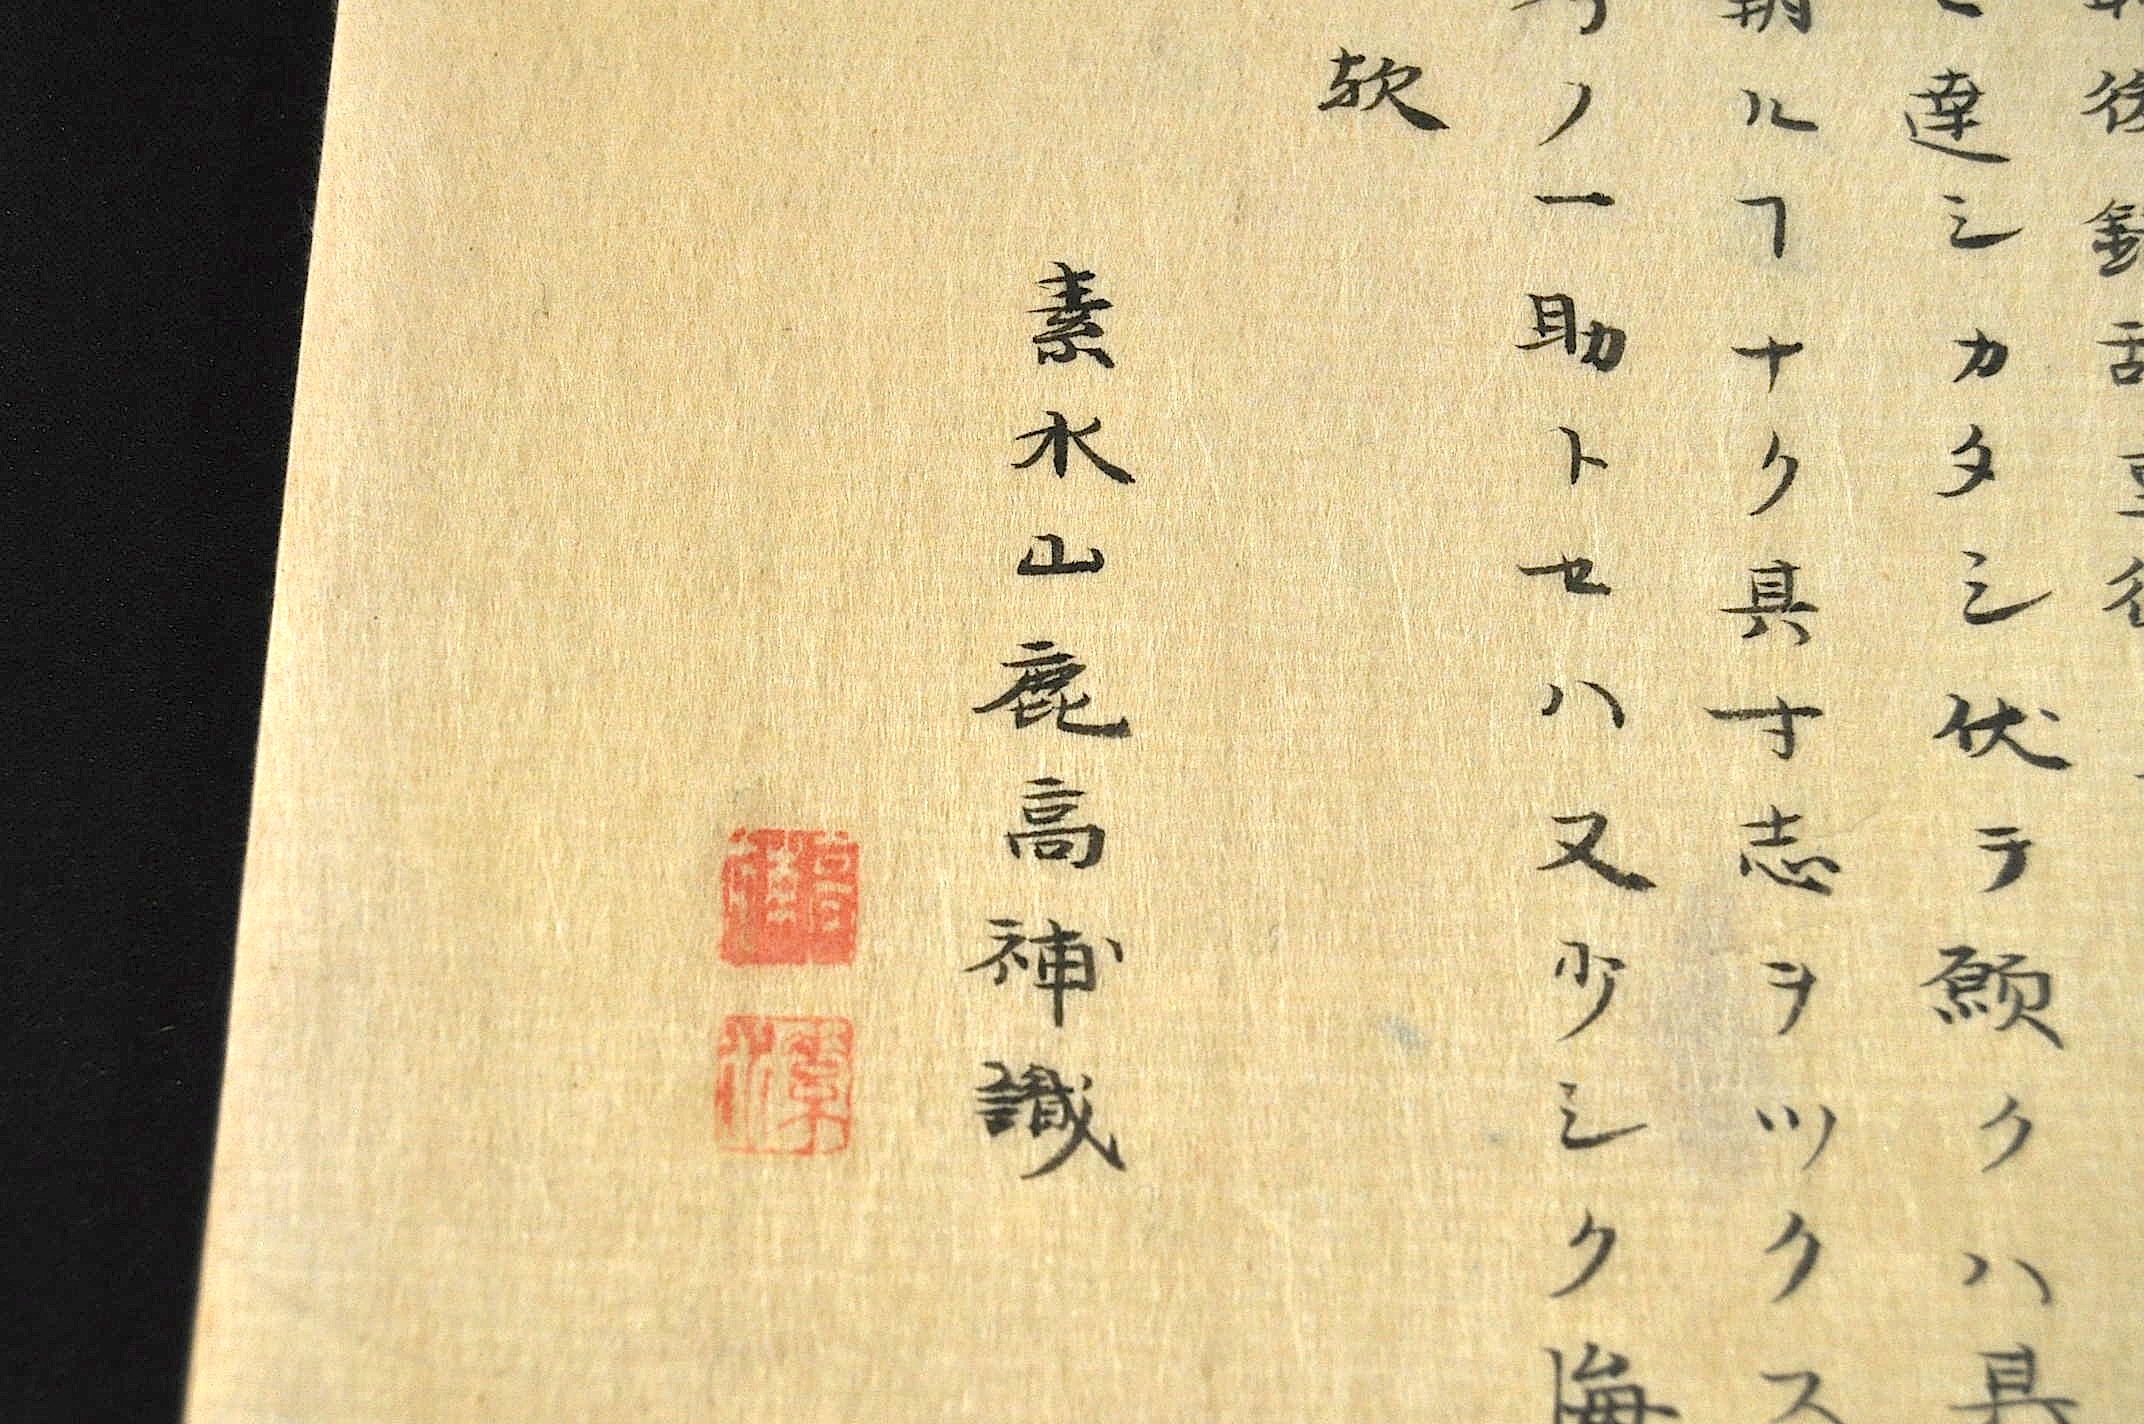 後録
達シカタシ伏テ願クハ具
ルヿナク具寸志ヲツクス
ノ一助トセハ又少シク海
欤
素水山鹿高補識